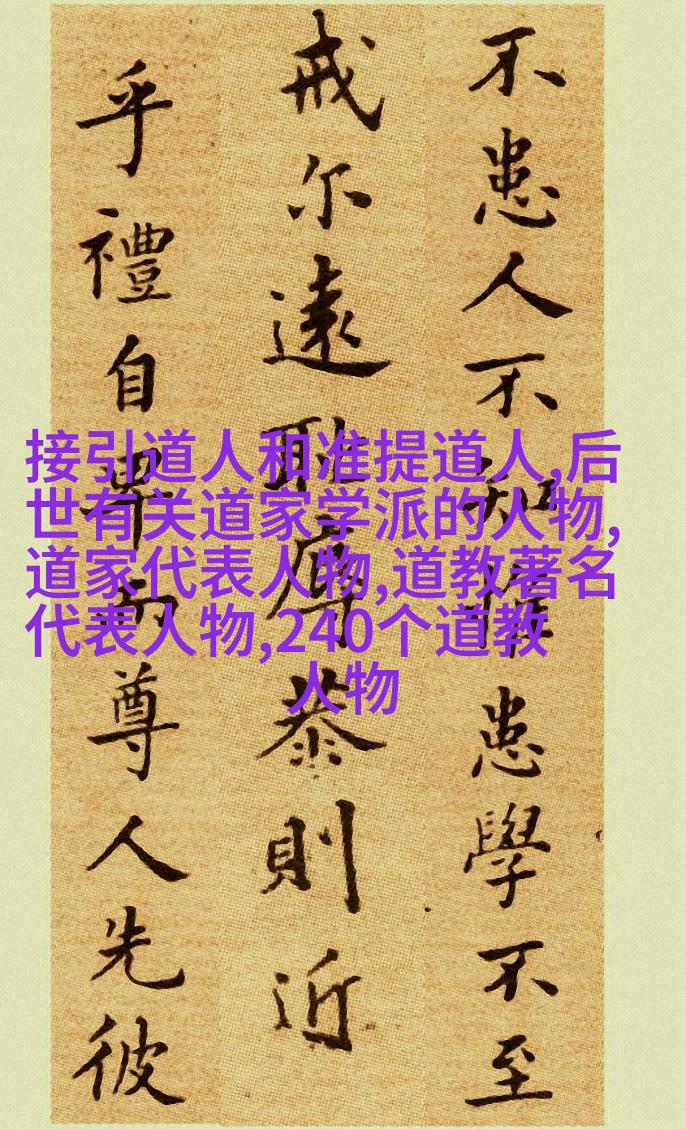 不患人不知惟患學不至
戒尔遠耻辱恭則近
乎禮自卑而尊人先彼
接引道人和准提道人,后
世有关道家学派的人物,
道家代表人物,道教著名
代表人物,240个道教
人物